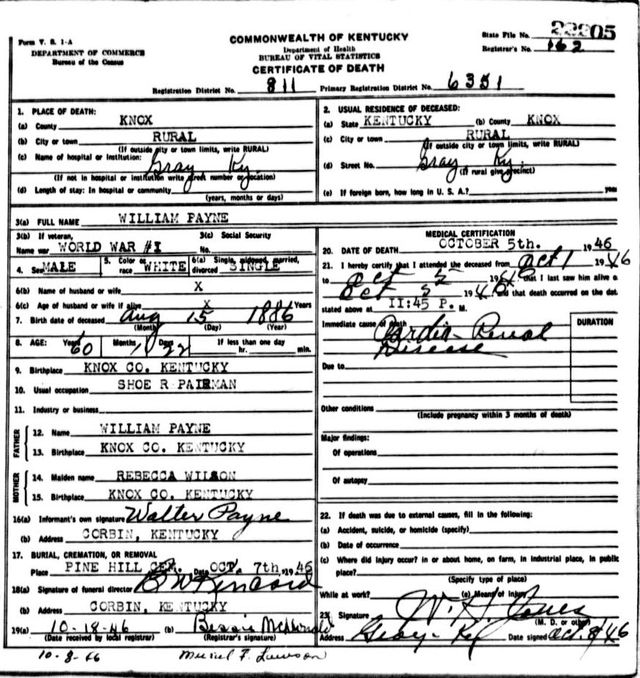 Form V. S. 1-A
DEPARTMENT OF COMMERCE
Bureau of the Census
COMMONWEALTH OF KENTUCKY
Department of Health
BUREAU OF VITAL STATISTICS
CERTIFICATE OF DEATH
State File No. 22205
Registrar's No. 162
Registration District No. 811 Primary Registration District No. 6351
1. PLACE OF DEATH:
(a) County KNOX
(b) City or town RURAL
(If outside city or town limits, write RURAL)
(c) Name of hospital or institution: Gray Ky
(If not in hospital or institution write street number or location)
(d) Length of stay: In hospital or community
(years, months or days)
2. USUAL RESIDENCE OF DECEASED:
(a) State KENTUCKY (b) County KNOX
(c) City or town RURAL
(If outside city or town limits, write RURAL)
(d) Street No. Gray Ky.
(If rural give precinct)
(e) If foreign born, how long in U. S. A.? year
3(a) FULL NAME WILLIAM PAYNE
3(b) If veteran, Name war WORLD WAR #I
3(c) Social Security No.
4. Sex MALE 5. Color or race WHITE 6(a) Single, widowed, married, divorced SINGLE
6(b) Name of husband or wife X
6(c) Age of husband or wife if alive X Years
7. Birth date of deceased Aug 15 1886
(Month) (Day) (Year)
8. AGE: Years 60 Months 1 22 If less than one day hr. min.
9. Birthplace KNOX CO. KENTUCKY
10. Usual occupation SHOE R PAIRMAN
11. Industry or business
FATHER
12. Name WILLIAM PAYNE
13. Birthplace KNOX CO. KENTUCKY
MOTHER
14. Maiden name REBECCA WILSON
15. Birthplace KNOX CO. KENTUCKY
16(a) Informant's own signature Walter Payne
(b) Address CORBIN, KENTUCKY
17. BURIAL, CREMATION, OR REMOVAL
Place PINE HILL CEM. Date OCT. 7th. 1946
18(a) Signature of funeral director
(b) Address CORBIN, KENTUCKY
19(a) 10-18-46 (b) Bessie
(Date received by local registrar) (Registrar's signature)
10-8-46 Muriel F. Lawson
MEDICAL CERTIFICATION
20. DATE OF DEATH OCTOBER 5th. 1946
21. I hereby certify that I attended the deceased from Oct 1 1946
to Oct 5 1946 that I last saw him alive o
Oct 5 1946 that death occurred on the dat
stated above at 11:45 P. M.
DURATION
Immediate cause of death Cardio Renal
Disease
Due to
Other conditions
(Include pregnancy within 3 months of death)
Major findings:
Of operations
Of autopsy
22. If death was due to external causes, fill in the following:
(a) Accident, suicide, or homicide (specify)
(b) Date of occurrence
(c) Where did injury occur? in or about home, on farm, in industrial place, in public
place?
(Specify type of place)
While at work? (e) Means of injury
23. Signature W. H. Jones
(M. D. or other)
Address Gray- Ky Date signed Oct. 8 46